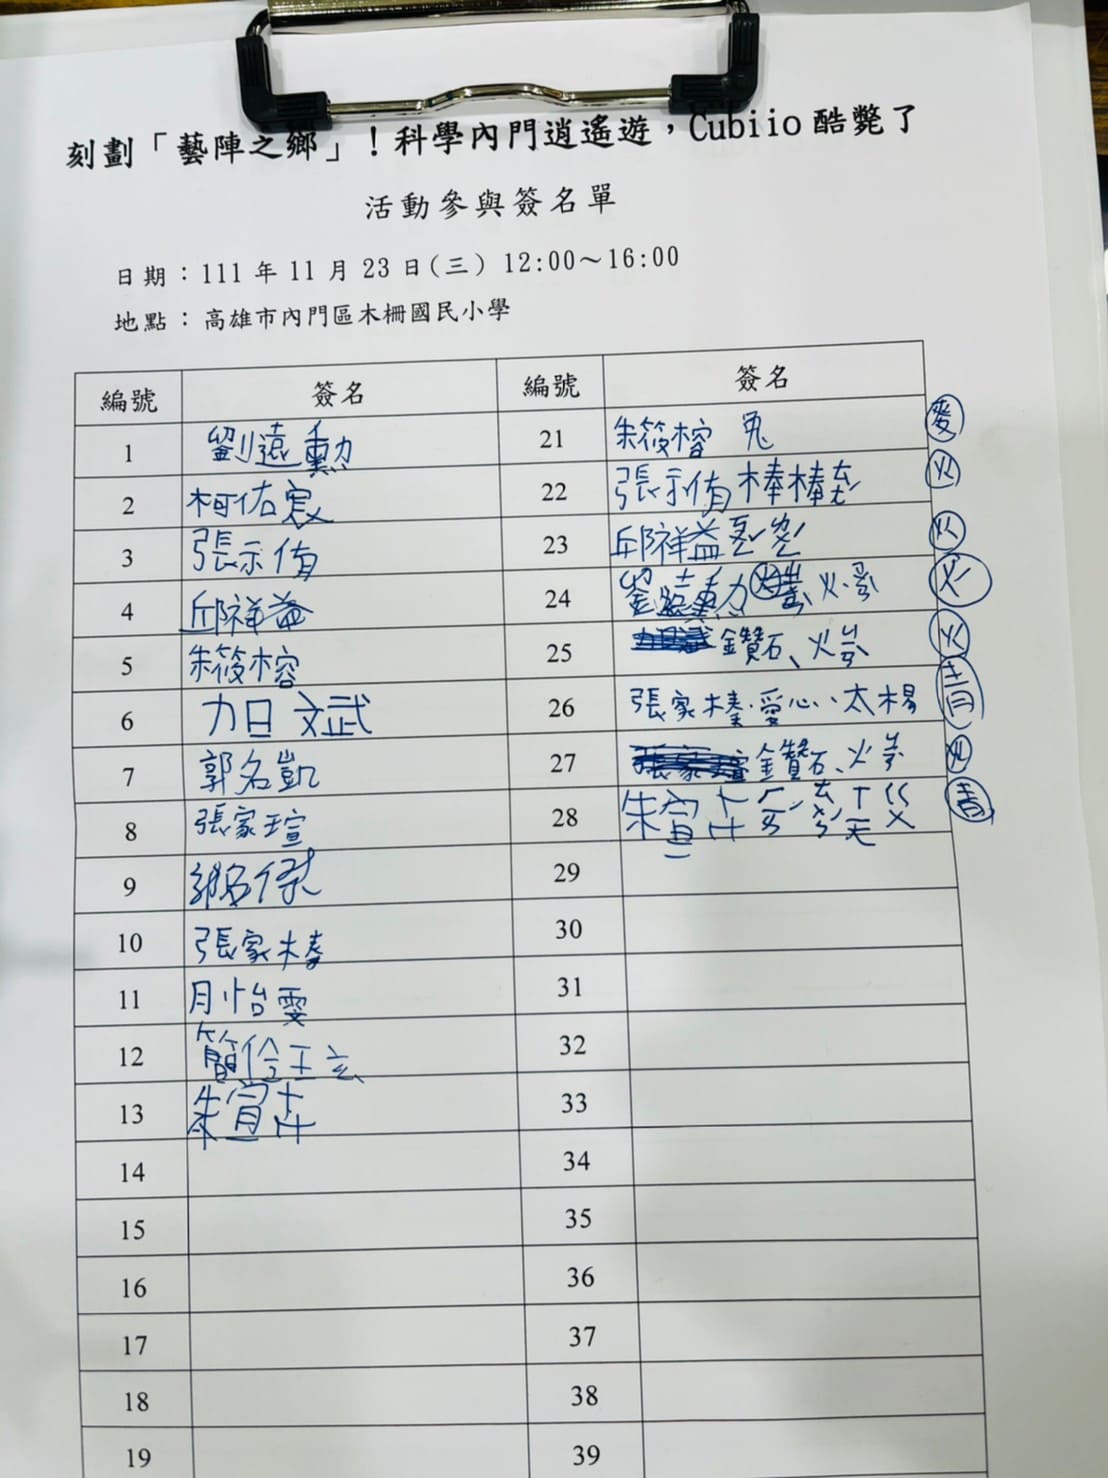 刻劃「藝陣之鄉」！科學內門逍遙遊，Cubiio 酷斃了
活動參與簽名單
日期：111 年 11 月 23 日(三) 12:00～16:00
地點：高雄市內門區木柵國民小學
編號 簽名 編號 簽名
1 劉遠勳 21 朱筱榕 兔 麥
2 柯佑 22 張示侑 棒棒 火
3 張示侑 23 邱祥益 火
4 邱祥益 24 劉遠勳 火 火
5 朱筱榕 25 鑽石、火 火
6 力日 文武 26 張家榛.愛心、太楊 青
7 郭名凱 27 金鑽石、火 火
8 張家瑄 28 朱宣卉 青
9 郭名傑 29
10 張家榛 30
11 月怡雯 31
12 簡伶玹 32
13 朱宣卉 33
14 34
15 35
16 36
17 37
18 38
19 39